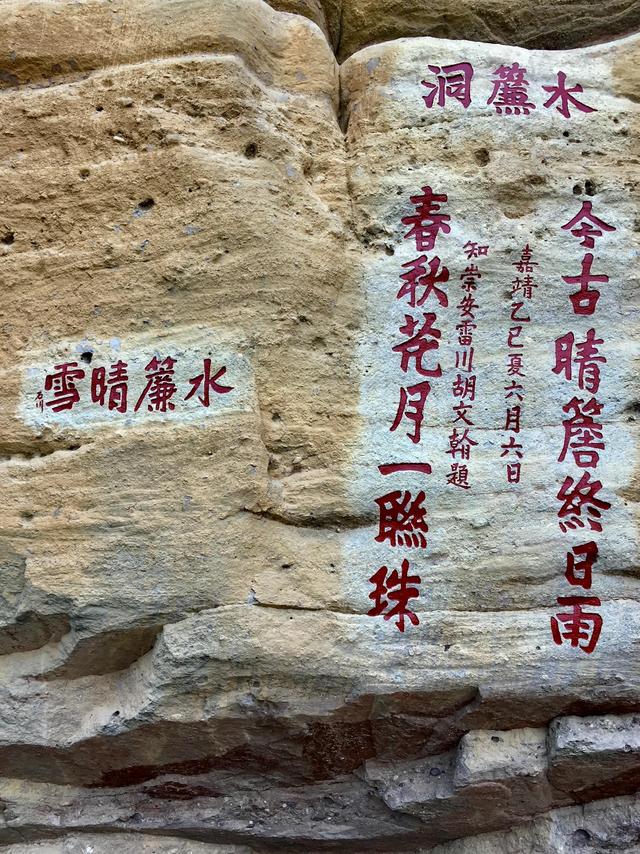 水簾洞
今古晴簷終日雨
嘉靖乙巳夏六月六日
知崇安雷川胡文翰題
春秋花月一聯珠
水簾晴雪
石川